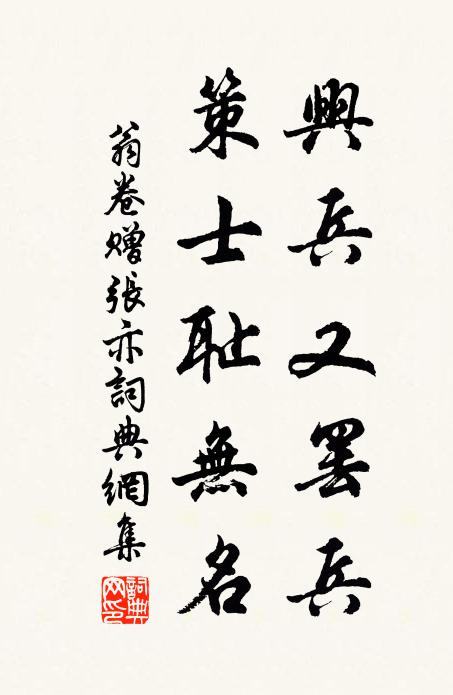 興兵又罷兵
策士耻無名
翁卷贈張亦詞典網集
詞典
网印